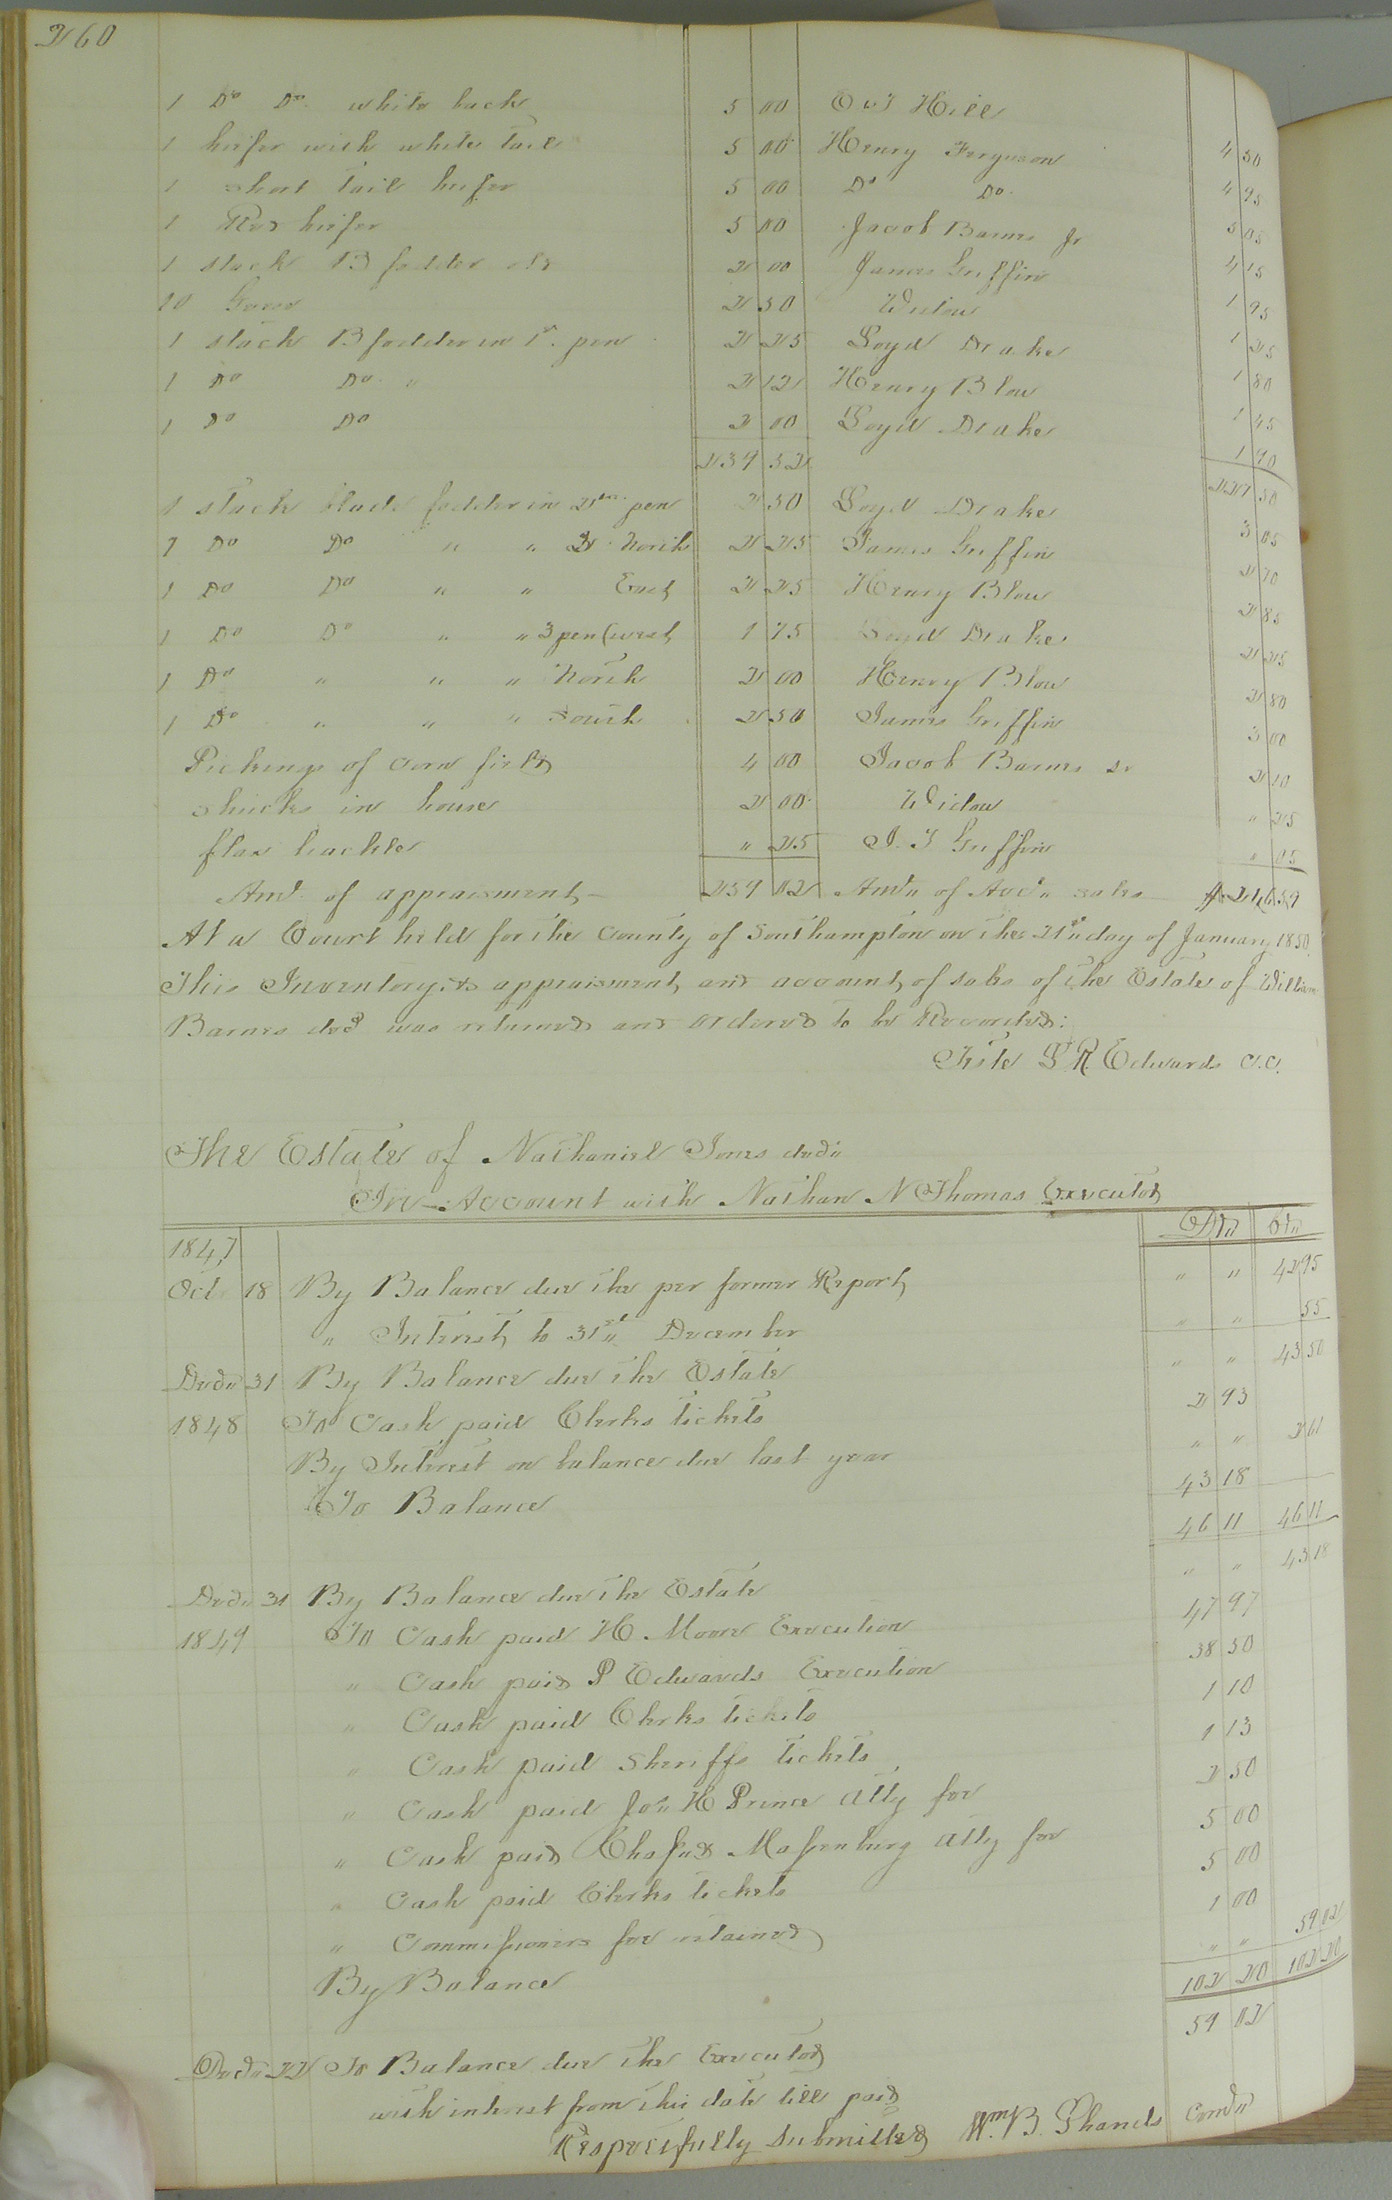 260
1 Do Do white back 5 00 O & J Hill 4 50
1 heifer with white tail 5 00 Henry Ferguson 4 95
1 short tail heifer 5 00 Do Do 5 05
1 Red heifer 5 00 Jacob Barnes Jr 4 15
1 stack B fodder old 2 00 James Griffin 1 95
10 Geese 2 50 Widow 1 25
1 stack B fodder in 1st pen 2 25 Loyd Drake 1 80
1 Do Do " 2 12 Henry Blow 1 45
1 Do Do 2 00 Loyd Drake 1 70
239 52 227 50
1 stack blade fodder in 2nd pen 2 50 Loyd Drake 3 05
1 Do Do " " 2 North 2 25 James Griffin 2 70
1 Do Do " " East 2 25 Henry Blow 2 85
1 Do Do " " 3 pen (west 1 75 Loyd Drake 2 25
1 Do " " " North 2 00 Henry Blow 2 80
1 Do " " " South 2 50 James Griffin 3 00
Pickings of corn field 4 00 Jacob Barnes sr 2 10
shucks in house 2 00 Widow " 25
flax hackle " 25 J. T Griffin " 05
Amt. of appraisment 259 02 Amt. of Acct. sales 246 59
At a Court held for the County of Southampton on the 21st day of January 1850
This Inventory & appraisment and account of sales of the Estate of William
Barnes decd was returned and ordered to be Recorded:
Teste L R Edwards C.C.
The Estate of Nathaniel Jones decd.
In Account with Nathan N Thomas Executor
Dr. Cr.
1847
Oct 18 By Balance due the per former Report " " 42 95
" Interest to 31st December " " 55
Decr. 31 By Balance due the Estate " " 43 50
1848 To Cash paid Clerks tickets 2 93
By Interest on balance due last year " " 2 61
To Balance 43 18
46 11 46 11
Decr. 31 By Balance due the Estate " " 43 18
1849 To Cash paid H. Moore Execution 47 97
" Cash paid P Edwards Execution 38 50
" Cash paid Clerks tickets 1 10
" Cash paid Sheriffs tickets 1 13
" Cash paid Jos. H Prince Atty fee 2 50
" Cash paid Massenburg Atty fee 5 00
" Cash paid Clerks tickets 5 00
" Commissioners fee retained 1 00
By Balance " " 59 02
102 20 102 20
Decr. 22 To Balance due the Executor 59 02
with interest from this date till paid
Respectfully Submitted Wm. B. Shands Comr.